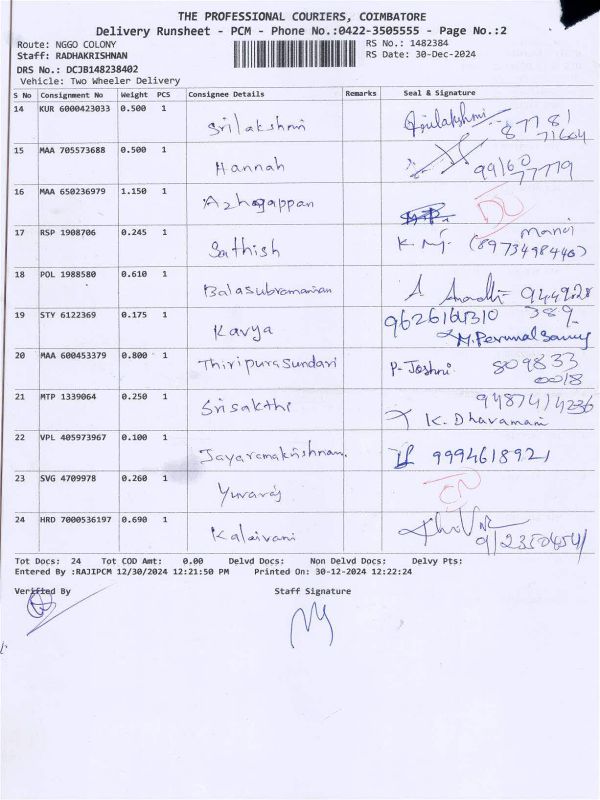 THE PROFESSIONAL COURIERS, COIMBATORE
Delivery Runsheet - PCM - Phone No.:0422-3505555 - Page No.:2
Route: NGGO COLONY RS No.: 1482384
Staff: RADHAKRISHNAN RS Date: 30-Dec-2024
DRS No.: DCJB148238402
Vehicle: Two Wheeler Delivery
S No Consignment No Weight PCS Consignee Details Remarks Seal & Signature
14 KUR 6000423033 0.500 1 Srilakshmi Srilakshmi 87781
71664
15 MAA 705573688 0.500 1 Hannah 99160
77779
16 MAA 650236979 1.150 1 Azhagappan
17 RSP 1908706 0.245 1 Sathish Manoj
(8973498440)
18 POL 1988580 0.610 1 Balasubramanian
19 STY 6122369 0.175 1 Kavya
M. Perumal Samy
20 MAA 600453379 0.800 1 Thiripurasundari P-Joshni 809833
0018
21 MTP 1339064 0.250 1 Srisakthi 9487414236
K. Dhavamani
22 VPL 405973967 0.100 1 Jayaramakrishnan. 9994618921
23 SVG 4709978 0.260 1 Yuvaraj
24 HRD 7000536197 0.690 1 Kalaivani
Tot Docs: 24 Tot COD Amt: 0.00 Delvd Docs: Non Delvd Docs: Delvy Pts:
Entered By :RAJIPCM 12/30/2024 12:21:50 PM Printed On: 30-12-2024 12:22:24
Verified By Staff Signature